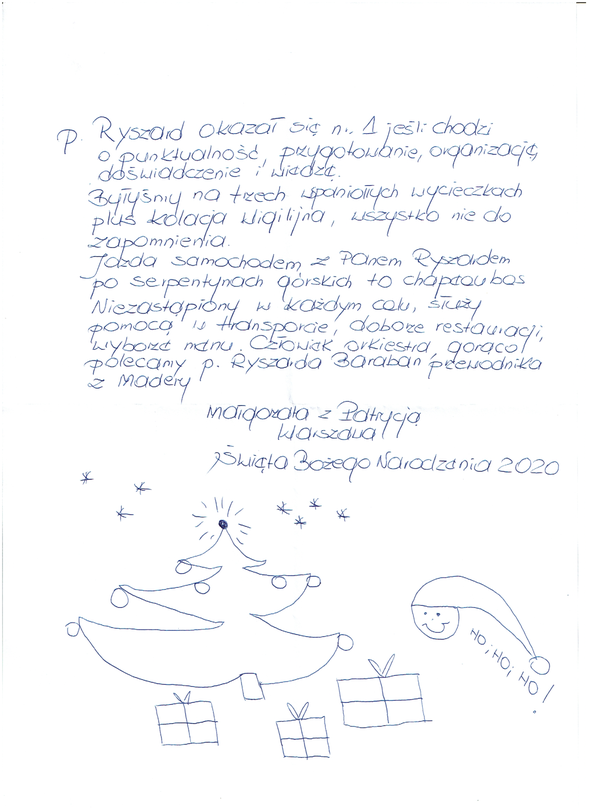 P. Ryszard okazał się n.. 1 jeśli chodzi
o punktualność, przygotowanie, organizację,
doświadczenie i wiedzę.
Byłyśmy na trzech wspaniałych wycieczkach
plus kolacja wigilijna, wszystko nie do
zapomnienia.
Jazda samochodem z Panem Ryszardem
po serpentynach górskich to chapeau bas
Niezastąpiony w każdym calu, służy
pomocą w transporcie, doborze restauracji,
wyborze menu. Człowiek orkiestra, gorąco
polecamy p. Ryszarda Baraban, przewodnika
z Madery
Małgorzata z Patrycją
Warszawa
Święta Bożego Narodzenia 2020
HO, HO, HO!